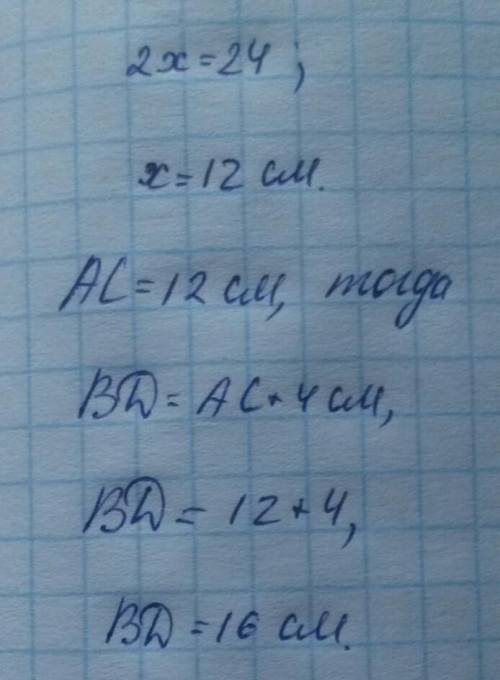 2x=24;
x=12 см.
AC=12 см, тогда
BD=AC+4 см,
BD=12+4,
BD=16 см.